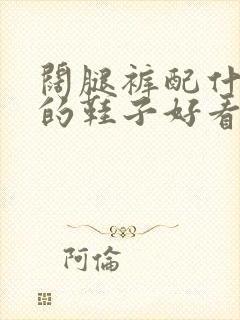 阔腿裤配什
的鞋子好看
阿倫